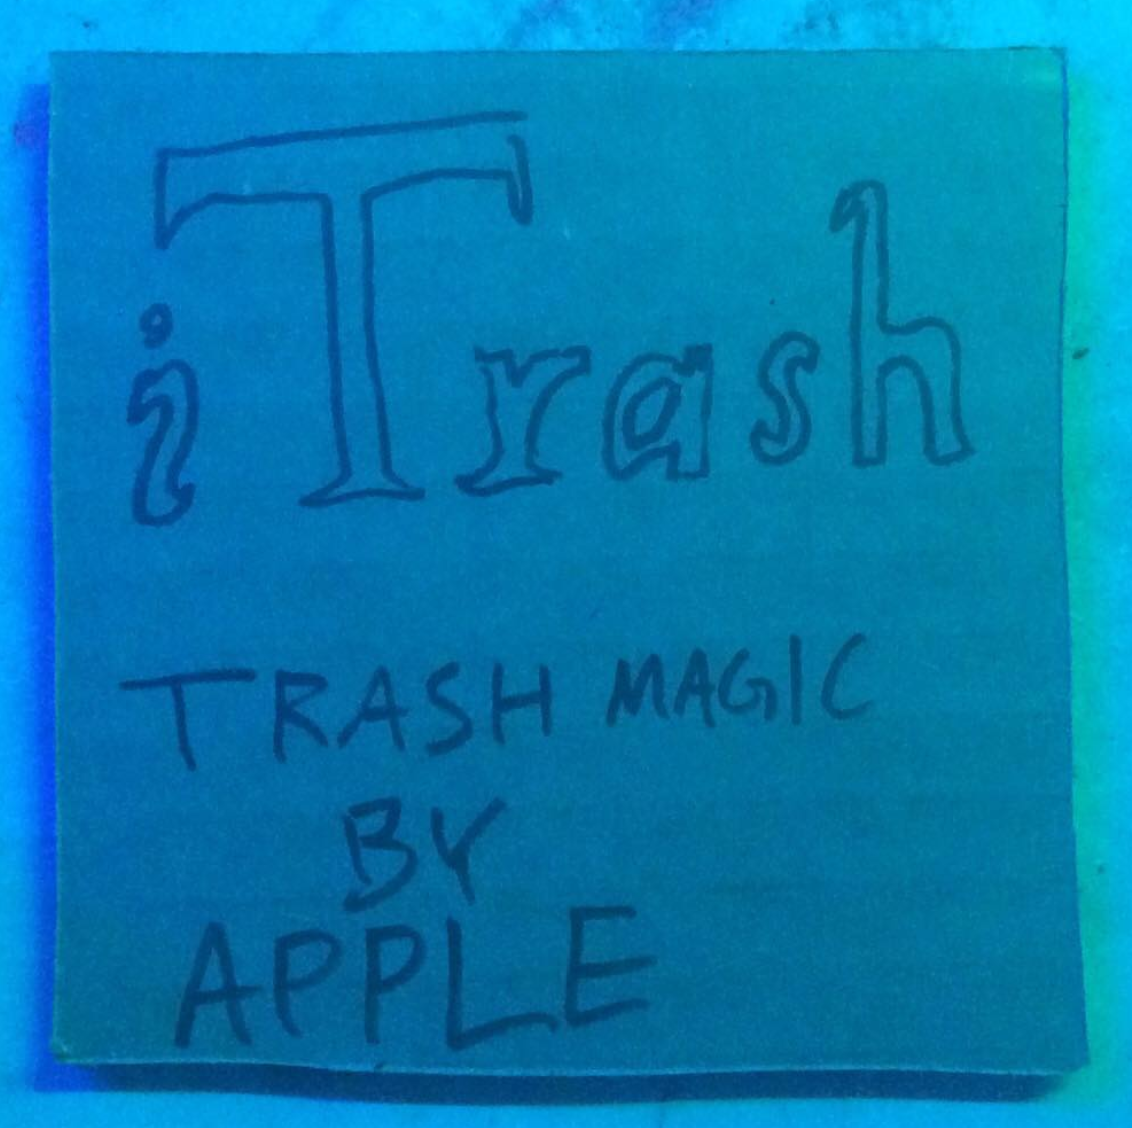 iTrash
TRASH MAGIC
BY
APPLE